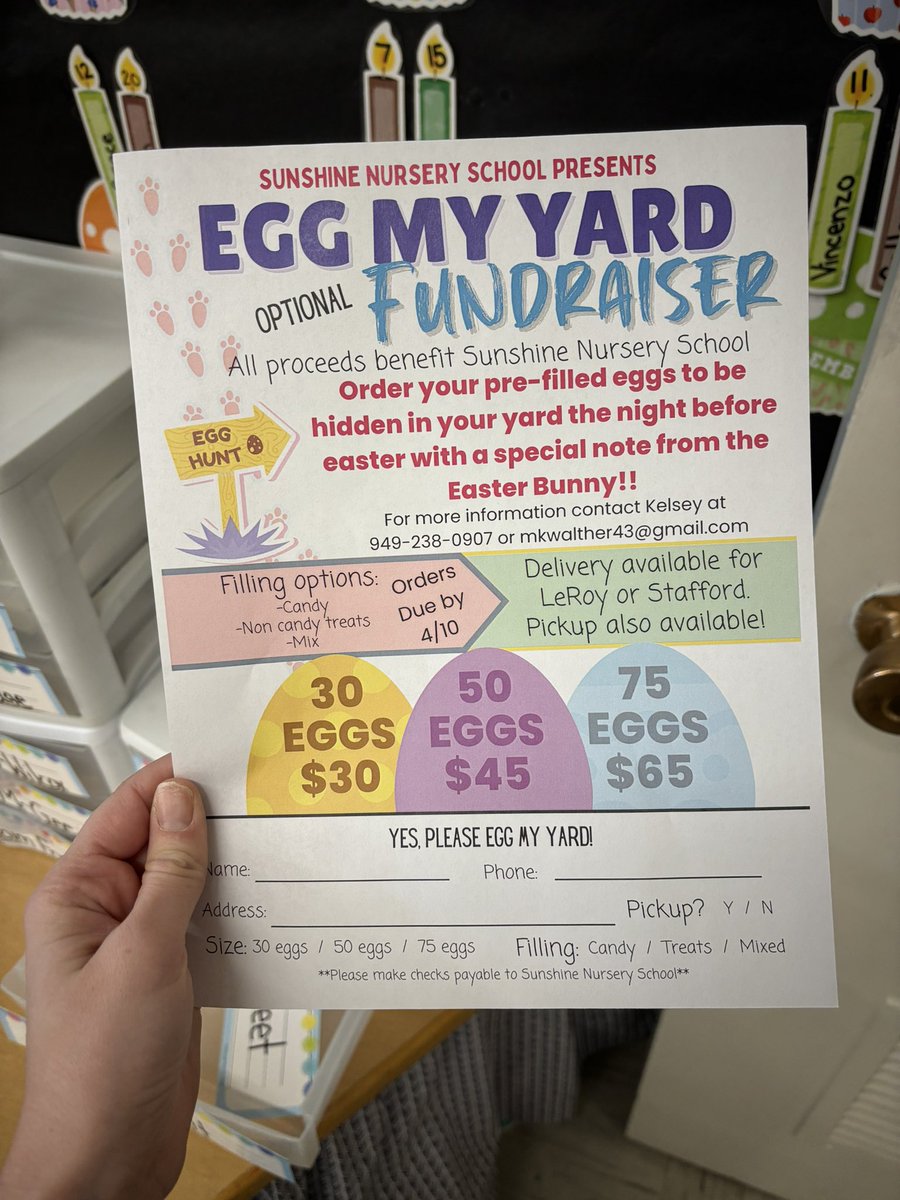 12
20
7
15
11
Vincenzo
SUNSHINE NURSERY SCHOOL PRESENTS
EGG MY YARD
OPTIONAL FUNDRAISER
All proceeds benefit Sunshine Nursery School
Order your pre-filled eggs to be
hidden in your yard the night before
easter with a special note from the
Easter Bunny!!
EGG
HUNT
For more information contact Kelsey at
949-238-0907 or mkwalther43@gmail.com
Filling options:
-Candy
-Non candy treats
-Mix
Orders
Due by
4/10
Delivery available for
LeRoy or Stafford.
Pickup also available!
30
EGGS
$30
50
EGGS
$45
75
EGGS
$65
YES, PLEASE EGG MY YARD!
Name: Phone:
Address: Pickup? Y / N
Size: 30 eggs / 50 eggs / 75 eggs Filling: Candy / Treats / Mixed
**Please make checks payable to Sunshine Nursery School**